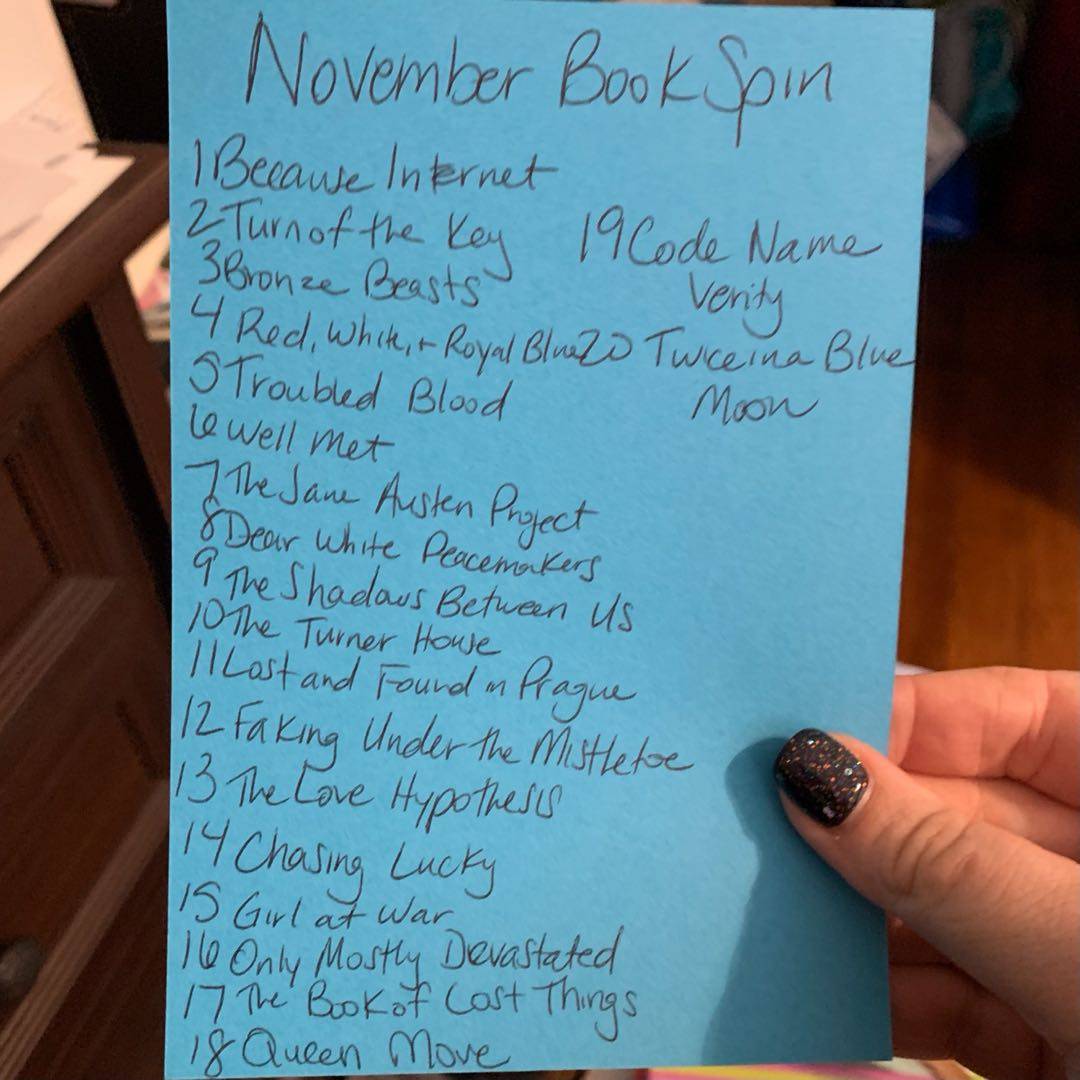 November Book Spin
1 Because Internet
2 Turn of the Key
3 Bronze Beasts
4 Red, White, + Royal Blue
5 Troubled Blood
6 Well Met
7 The Jane Austen Project
8 Dear White Peacemakers
9 The Shadows Between Us
10 The Turner House
11 Lost and Found in Prague
12 Faking Under the Mistletoe
13 The Love Hypothesis
14 Chasing Lucky
15 Girl at War
16 Only Mostly Devastated
17 The Book of Lost Things
18 Queen Move
19 Code Name
Verity
20 Twice in a Blue
Moon